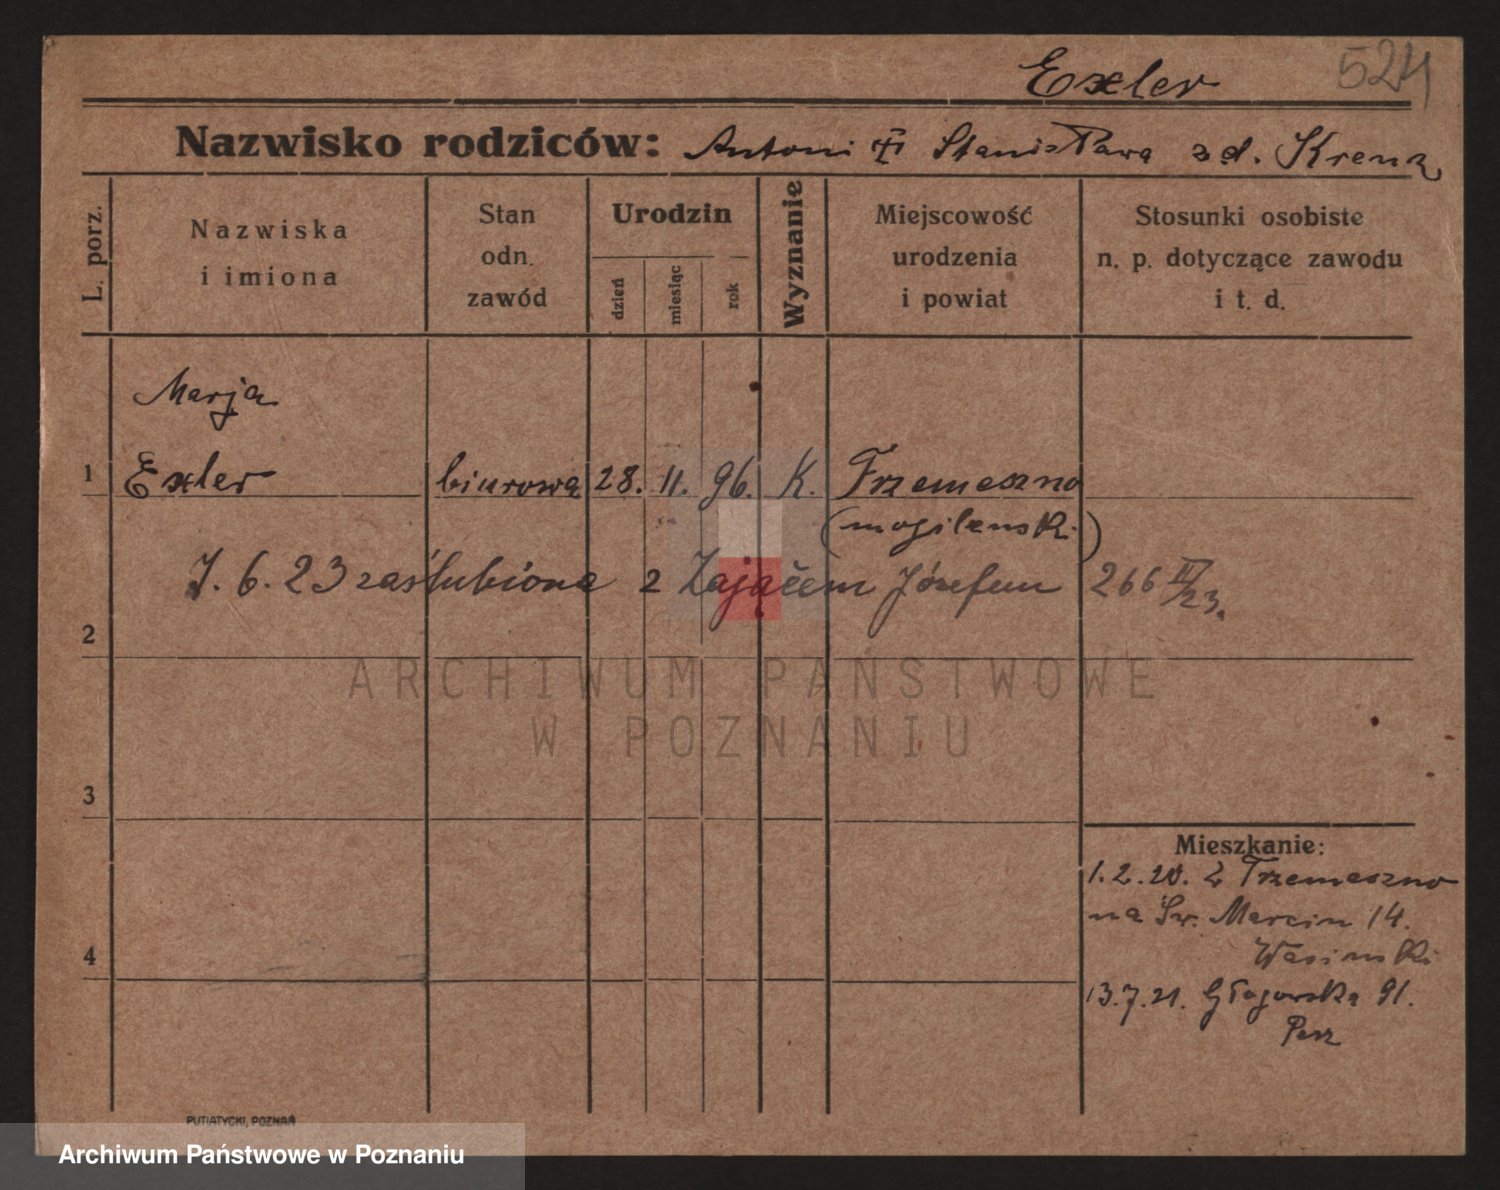 Exler 524
Nazwisko rodziców: Antoni Stanisława zd. Krenz
L. porz.
Nazwiska
i imiona
Stan
odn.
zawód
Urodzin
dzień
miesiąc
rok
Wyznanie
Miejscowość
urodzenia
i powiat
Stosunki osobiste
n. p. dotyczące zawodu
i t. d.
Marja
1 Exler biurowa 28. 11. 96. K. Trzemeszno
(mogilenski)
7. 6. 23 zaślubiona z Zającem Józefem 266 II/23.
2
ARCHIWUM PAŃSTWOWE
W POZNANIU
3
Mieszkanie:
1.2.20. z Trzemeszno
na Św. Marcin 14.
4
Wasinski
13.7.21. Głogowska 91.
PUTIATYCKI, POZNAŃ
Archiwum Państwowe w Poznaniu